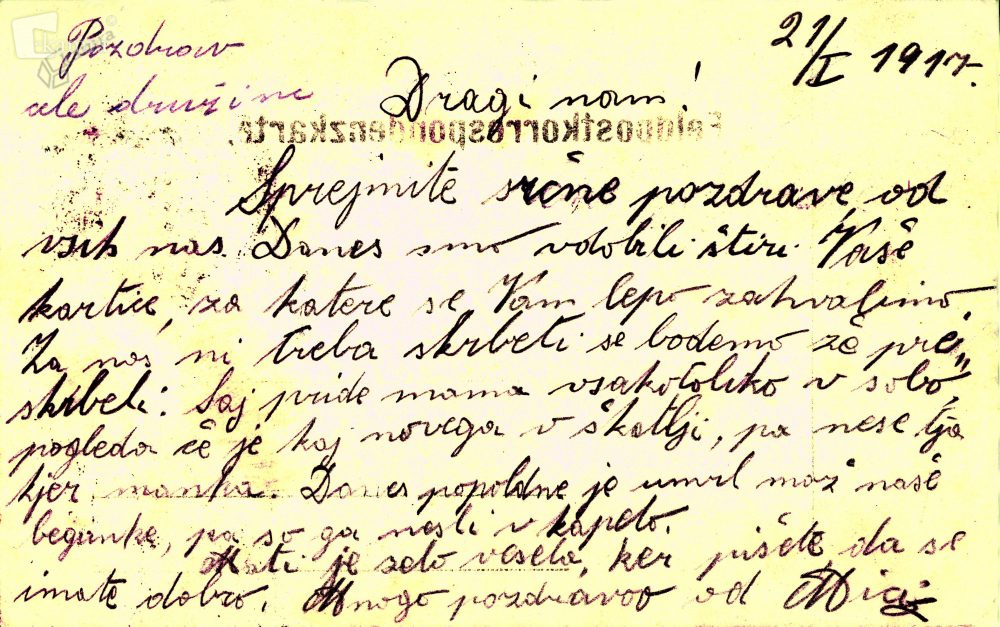 Pozdrav
cele družine
21/I 1917.
Dragi nam!
Feldpostkorrespondenzkarte.
Sprejmite srčne pozdrave od
vsih nas. Danes smo vdobili štiri Vaše
kartice, za katere se Vam lepo zahvalimo.
Za nas ni treba skrbeti se bodemo že pre„
skrbeli. Saj pride mama vsakotoliko v sobo,
pogleda če je kaj novega v škatlji, pa nese tja
kjer manka. Danes popoldne je umrl mož naše
begunke, pa so ga nesli v kapelo.
Mati je zelo vesela, ker pišete, da se
imate dobro. Mnogo pozdravov od Mici